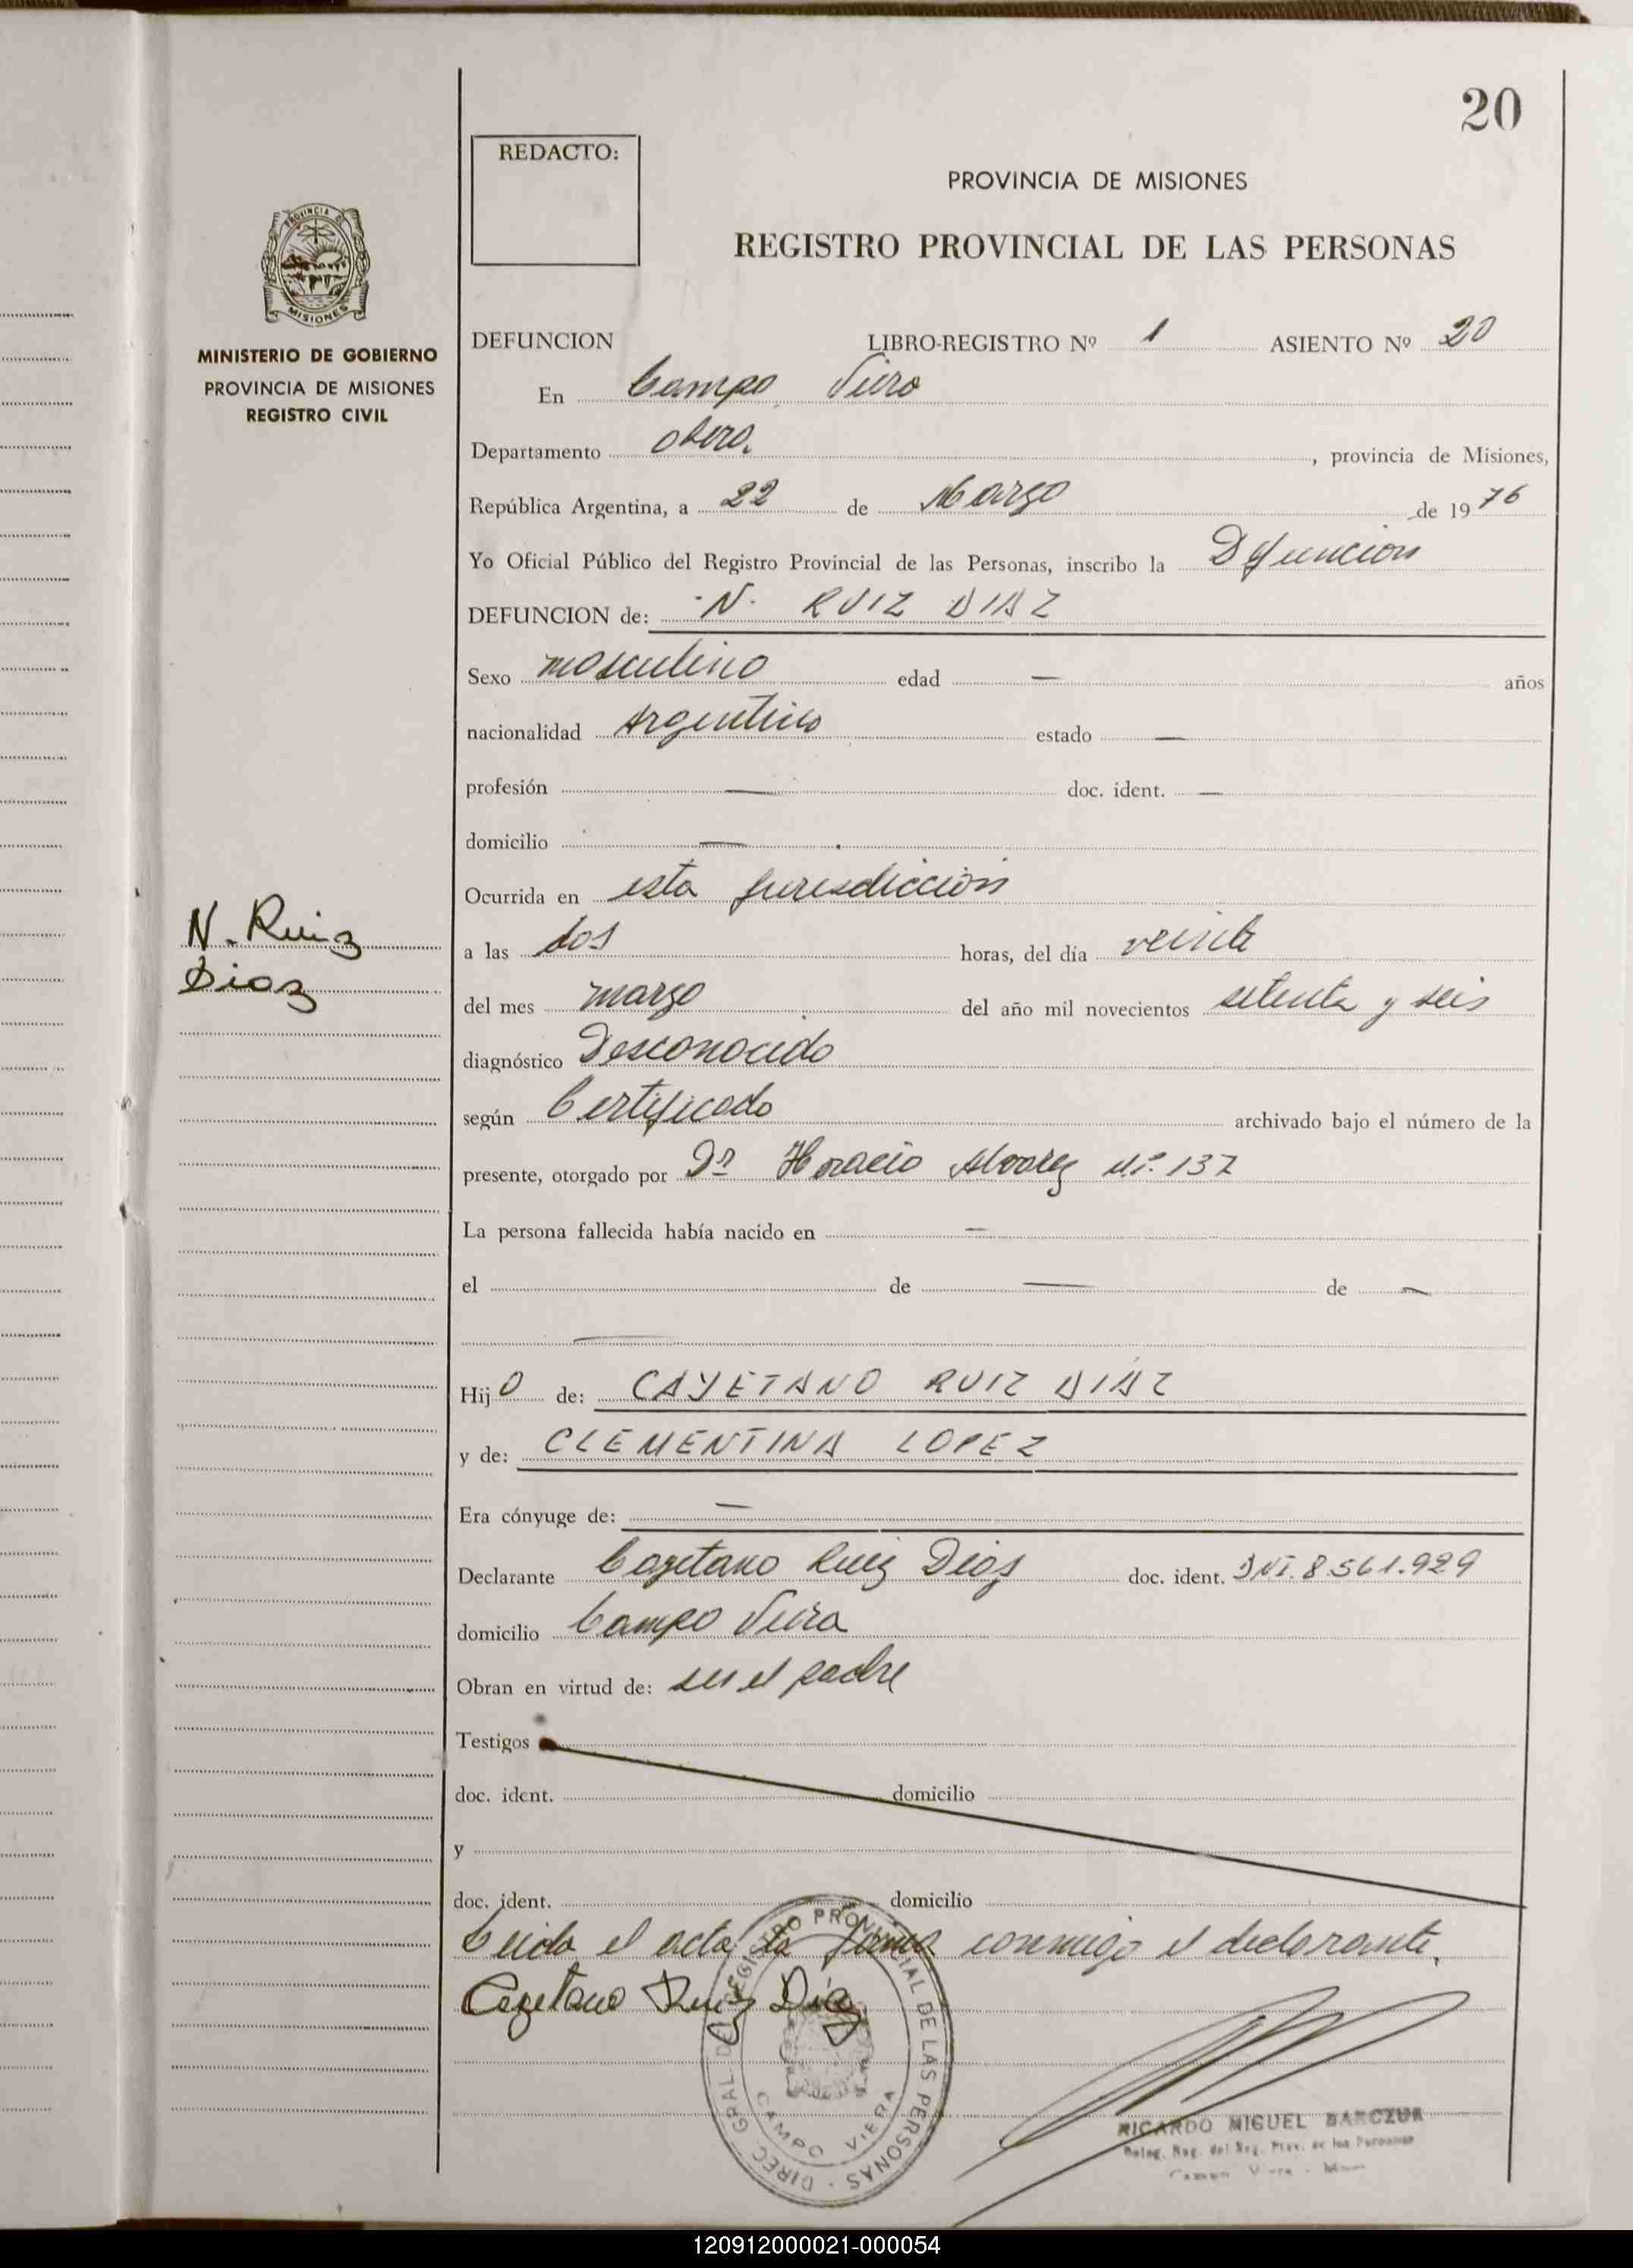 20
REDACTO:
PROVINCIA DE MISIONES
REGISTRO PROVINCIAL DE LAS PERSONAS
PROVINCIA DE
MISIONES
MINISTERIO DE GOBIERNO
PROVINCIA DE MISIONES
REGISTRO CIVIL
DEFUNCION LIBRO-REGISTRO Nº 1 ASIENTO Nº 20
En Campo Viera
Departamento Obera, , provincia de Misiones,
República Argentina, a 22 de Marzo de 1976
Yo Oficial Público del Registro Provincial de las Personas, inscribo la Defuncion
DEFUNCION de: N. RUIZ DIAZ
Sexo masculino edad — años
nacionalidad Argentino estado —
profesión — doc. ident. —
domicilio —
Ocurrida en esta jurisdicción
N. Ruiz
Diaz
a las dos horas, del día veinte
del mes marzo del año mil novecientos setenta y seis
diagnóstico Desconocido
según Certificado archivado bajo el número de la
presente, otorgado por Dr Horacio Alvarez Nº. 137
La persona fallecida había nacido en —
el de — de —
—
Hijo de: CAYETANO RUIZ DIAZ
y de: CLEMENTINA LOPEZ
Era cónyuge de: —
Declarante Cayetano Ruiz Diaz doc. ident. DNI. 8561.929
domicilio Campo Viera
Obran en virtud de: ser el padre
Testigos
doc. ident. domicilio
y
doc. ident. domicilio
Leida el acta la firma conmigo el declarante.
Cayetano Ruiz Diaz
DIREC GRAL DEL REGISTRO PROVINCIAL DE LAS PERSONAS
CAMPO VIERA
RICARDO MIGUEL BARCZUK
Deleg. Reg. del Reg. Prov. de las Personas
Campo Viera - Mnes
120912000021-000054